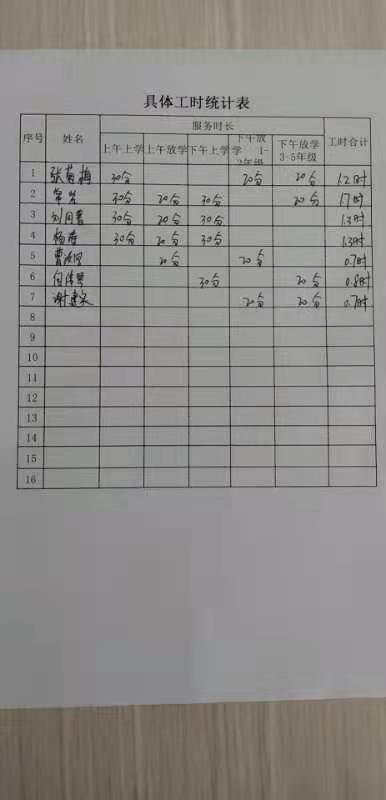 具体工时统计表
序号 姓名 服务时长 工时合计
上午上学 上午放学 下午上学 下午放学 1-2年级 下午放学 3-5年级
1 张 梅 30分 20分 20分 1.2时
2 30分 20分 30分 20分 1.7时
3 刘 30分 20分 30分 1.3时
4 杨 30分 20分 30分 1.3时
5 曹 20分 20分 0.7时
6 30分 20分 0.8时
7 谢 20分 20分 0.7时
8
9
10
11
12
13
14
15
16